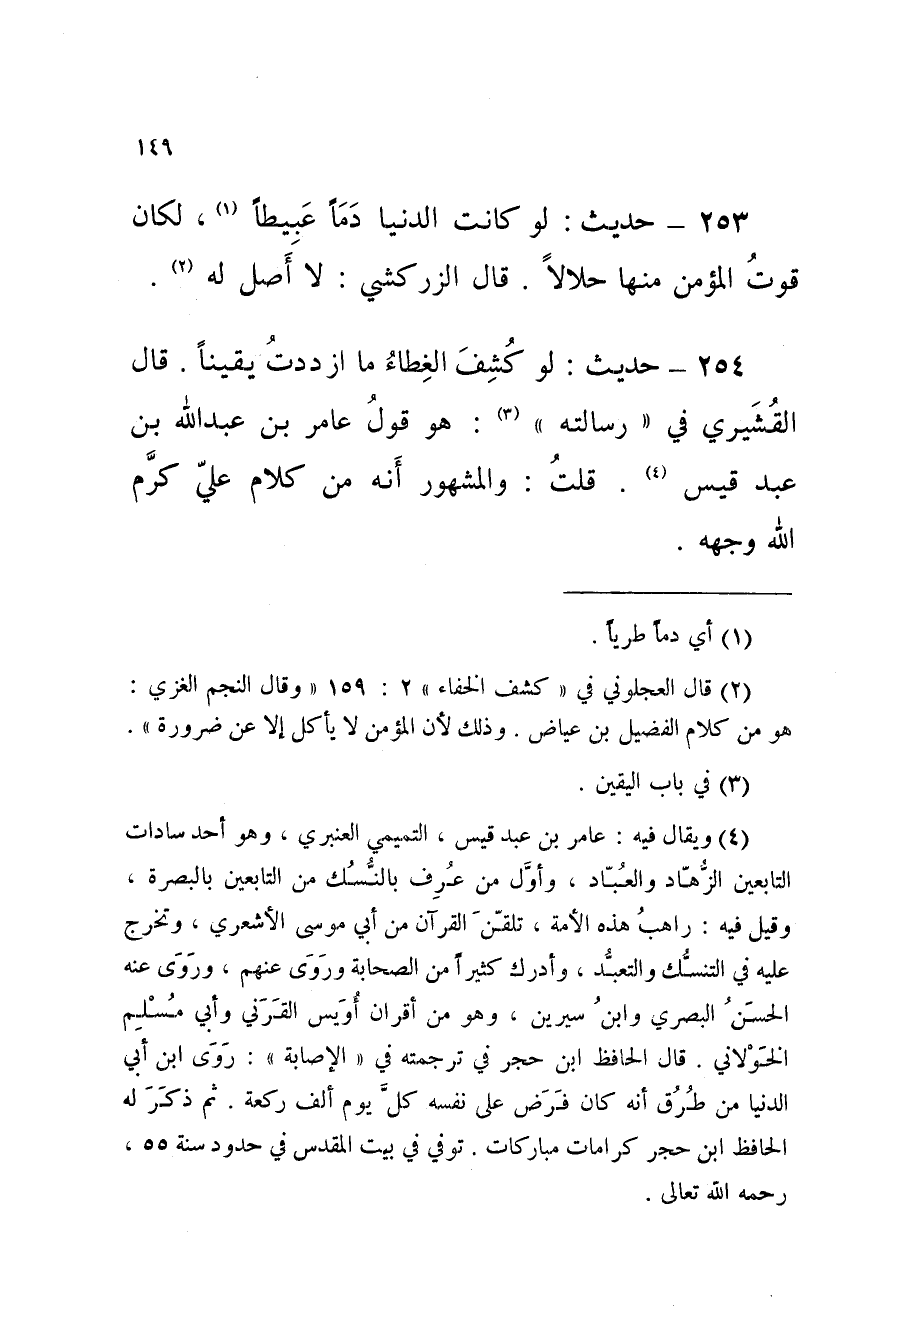 ١٤٩
٢٥٣ ــ حديث : لو كانت الدنيا دَمَاً عَبِيطاً (١) ، لكان
قوتُ المؤمن منها حلالاً . قال الزركشي : لا أَصل له (٢) .
٢٥٤ ــ حديث : لو كُشِفَ الغِطاءُ ما ازددتُ يقيناً . قال
القُشَيري في « رسالته » (٣) : هو قولُ عامر بن عبدالله بن
عبد قيس (٤) . قلتُ : والمشهور أَنه من كلام عليّ كرَّم
الله وجهه .
(١) أي دماً طرياً .
(٢) قال العجلوني في « كشف الخفاء » ٢ : ١٥٩ « وقال النجم الغزي :
هو من كلام الفضيل بن عياض . وذلك لأن المؤمن لا يأكل إلا عن ضرورة » .
(٣) في باب اليقين .
(٤) ويقال فيه : عامر بن عبد قيس ، التميمي العنبري ، وهو أحد سادات
التابعين الزُّهاد والعُبّاد ، وأوَّل من عُرِف بالنُّسُك من التابعين بالبصرة ،
وقيل فيه : راهبُ هذه الأمة ، تلقّنَ القرآن من أبي موسى الأشعري ، وتخرج
عليه في التنسُّك والتعبُّد ، وأدرك كثيراً من الصحابة ورَوَى عنهم ، ورَوَى عنه
الحسَنُ البصري وابنُ سيرين ، وهو من أقران أُوَيس القَرَني وأبي مُسْلِم
الخَوْلاني . قال الحافظ ابن حجر في ترجمته في « الإصابة » : رَوَى ابن أبي
الدنيا من طُرُق أنه كان فَرَض على نفسه كلَّ يوم ألف ركعة . ثم ذكَرَ له
الحافظ ابن حجر كرامات مباركات . توفي في بيت المقدس في حدود سنة ٥٥ ،
رحمه الله تعالى .